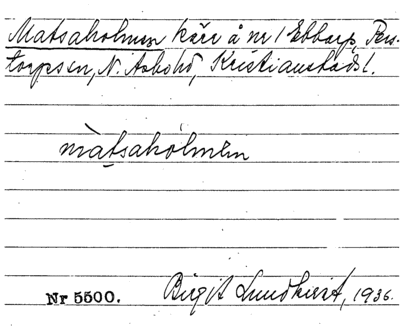 Matsaholmen kärr å nr 1 Ebbarp, Pers-
torps sn, N. Åsbo hd, Kristianstads l.
màtsahólmen
Nr 5500. Birgit Lundkvist, 1936.